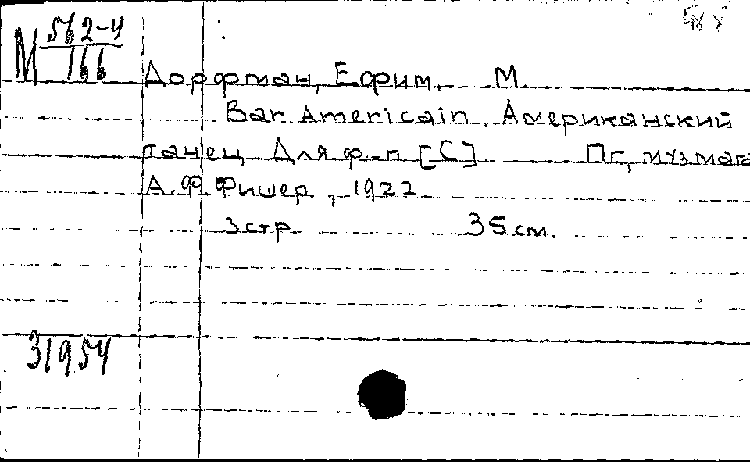 М 562-4
166
Дорфман, Ефим. М.
Bar Americain. Американский
танец Для ф-п [С] Пг, музмаг
А. Ф. Фишер, 1922
3 стр 35 см.
31954